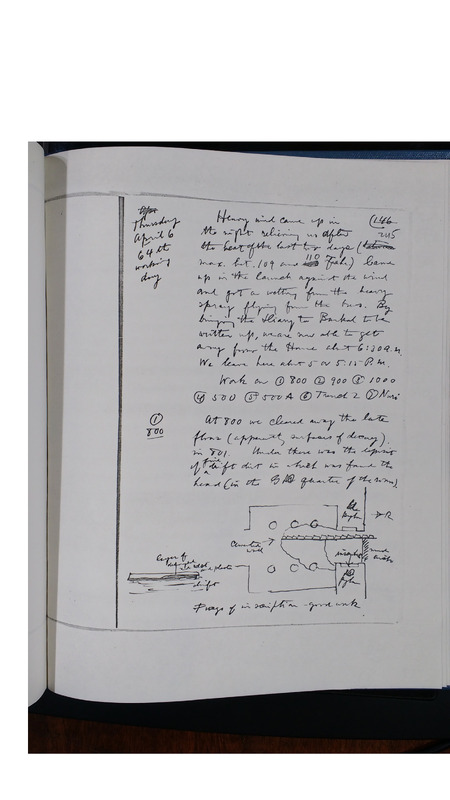 Thursday
April 6
64th
working
day
146
205
Heavy wind came up in
the night relieving us after
the heat of the last two days (between
max. hit. 109 and 110 Fah.) Came
up in the launch against the wind
and got a wetting from the heavy
spray flying from the bows. By
bringing the Diary to Barked to be
written up, we are now able to get
away from the House about 6:30 a.m.
We leave here about 5 or 5:15 P.m.
Work on ① 800 ② 900 ③ 1000
④ 500 ⑤ 500A ⑥ Trench 2 ⑦
①
800
At 800 we cleared away the late
floors (apparently surfaces of decay)
in 801. Under there was the deposit
of fine drift dirt in which was found the
head (in the quarter of the room).
Pylon
wall
mud
layer of
drift
Pylon
of inscription - good work